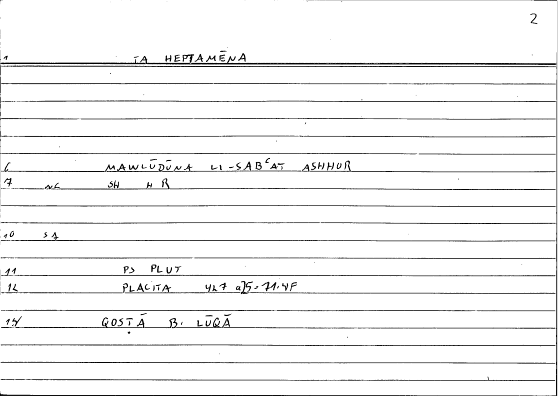 2
1 TA HEPTAMĒNA
6 MAWLŪDŪNA LI-SABʿAT ASHHUR
7 NC SH H R
10 SA
11 PS PLUT
12 PLACITA
14 QOSṬĀ B. LŪQĀ